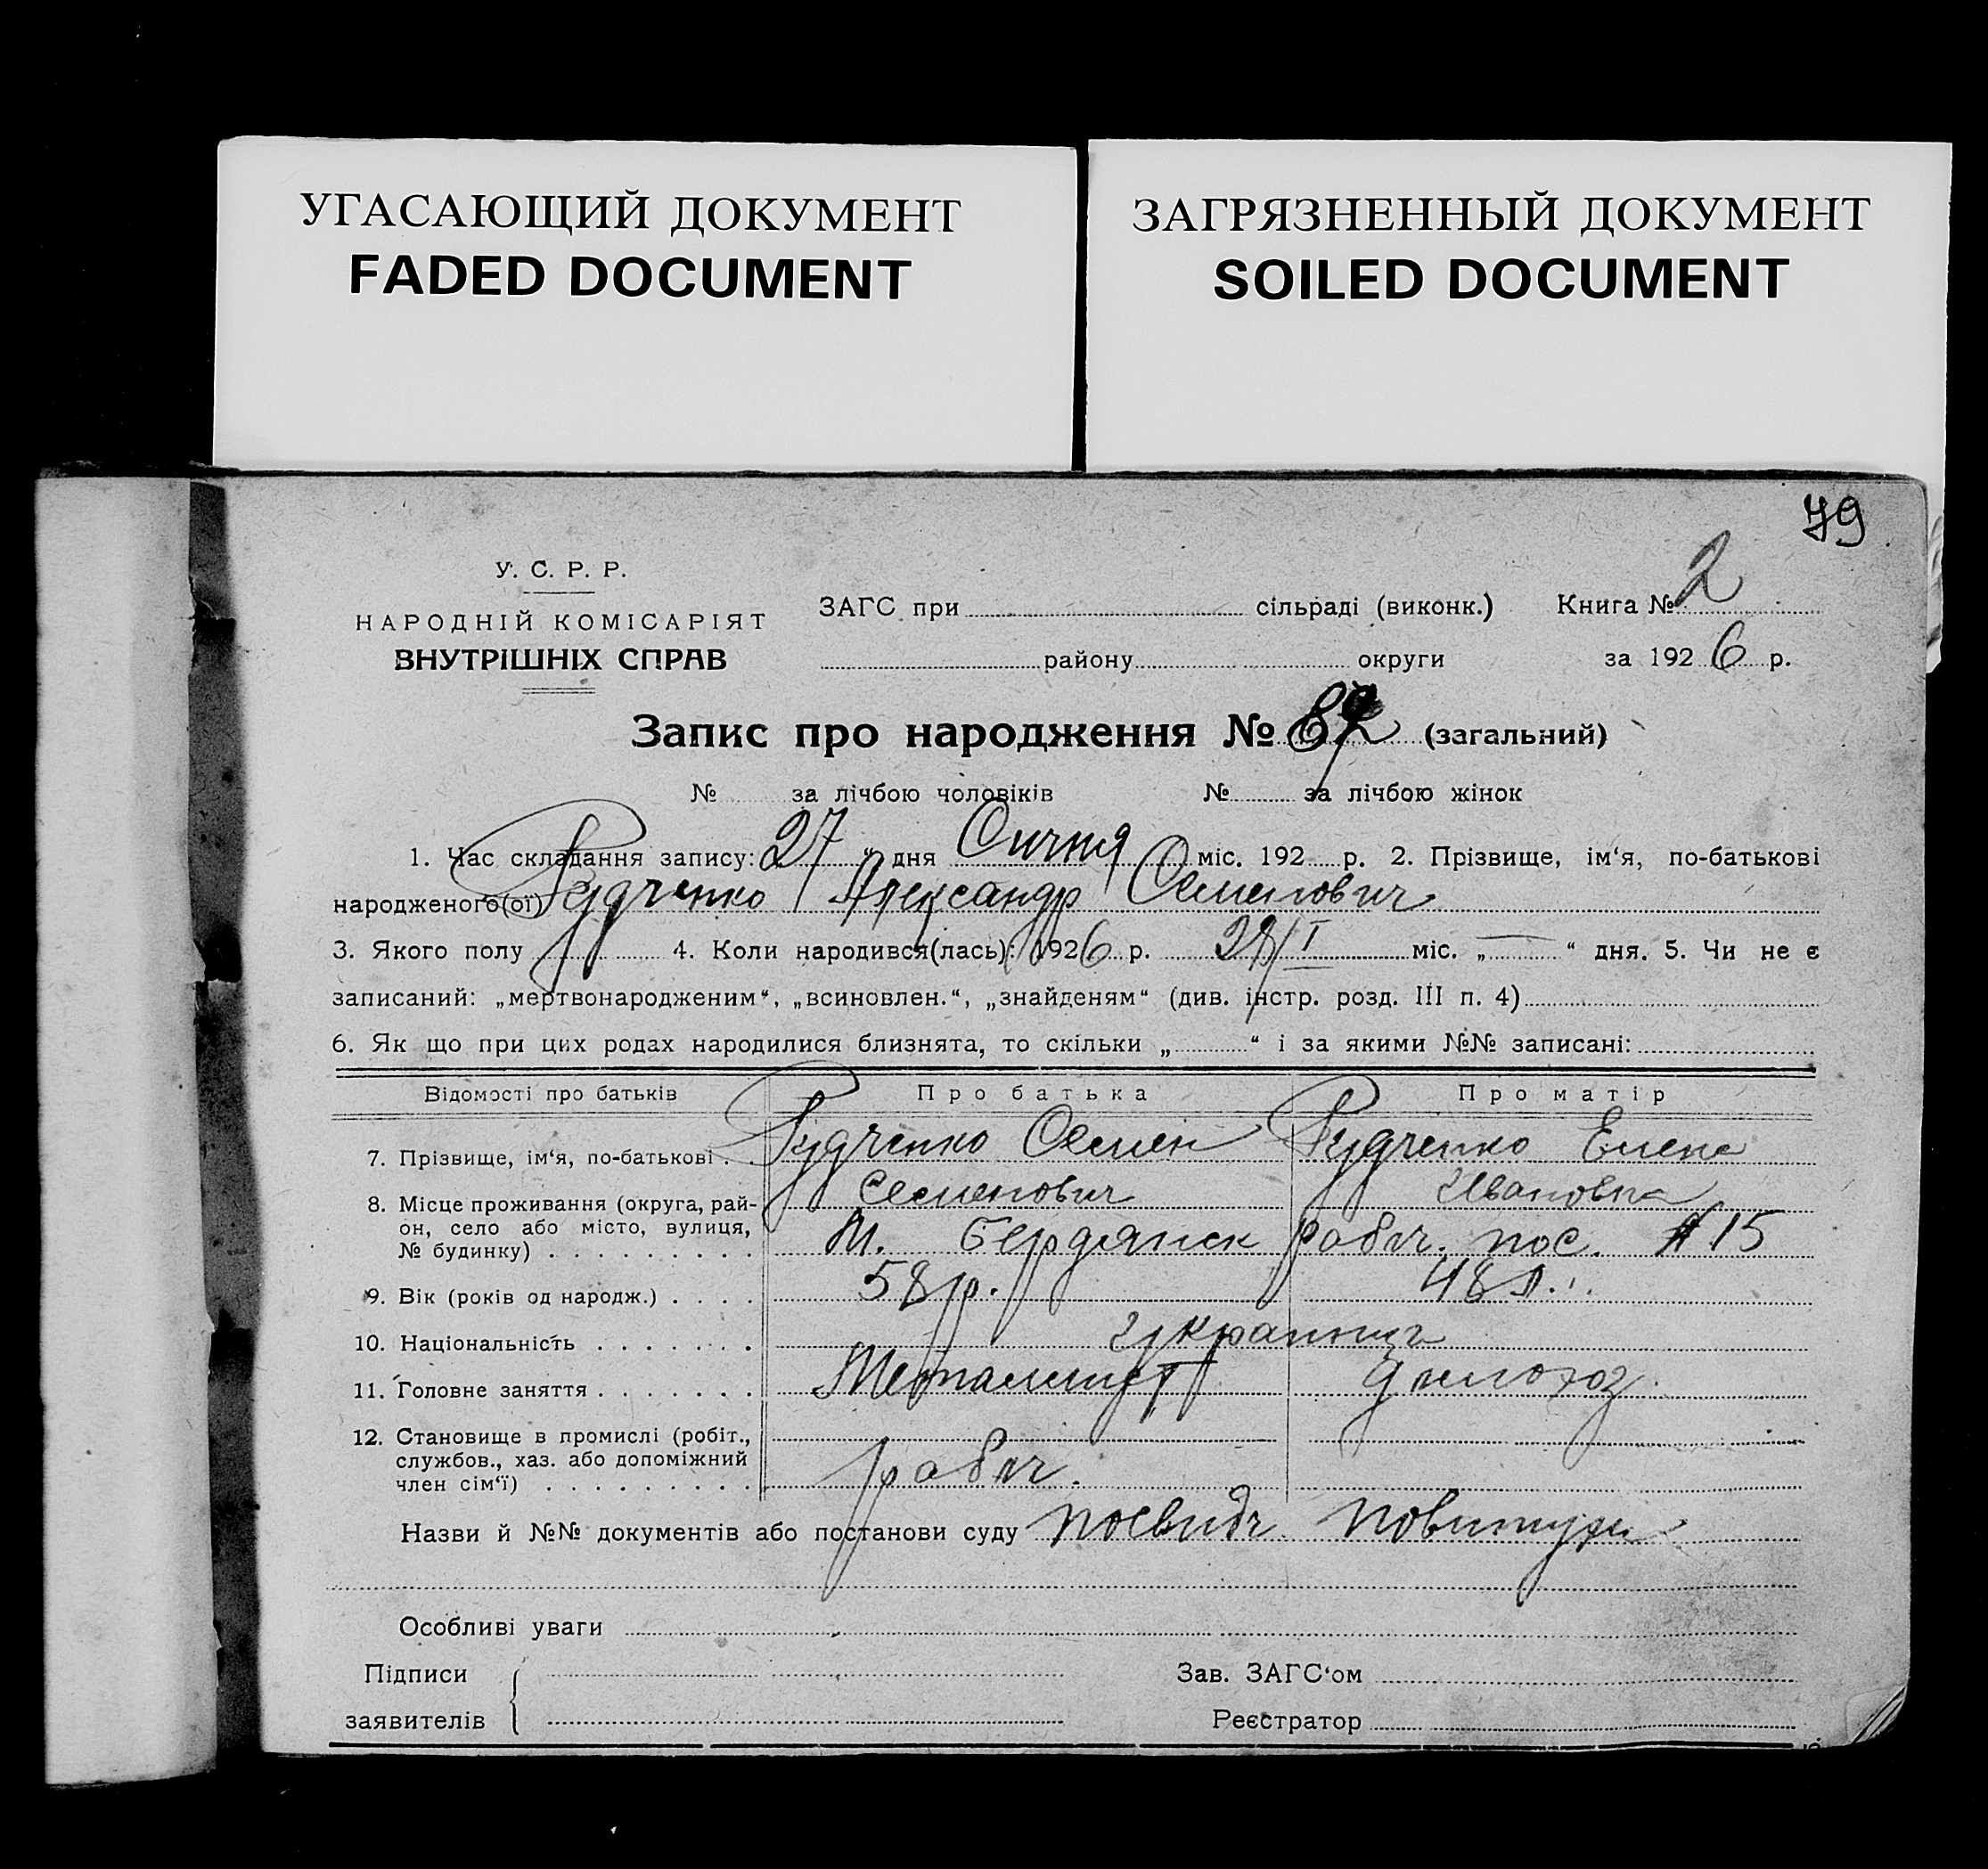 УГАСАЮЩИЙ ДОКУМЕНТ
FADED DOCUMENT
ЗАГРЯЗНЕННЫЙ ДОКУМЕНТ
SOILED DOCUMENT
79
У. С. Р. Р.
НАРОДНІЙ КОМІСАРІЯТ
ВНУТРІШНІХ СПРАВ
ЗАГС при сільраді (виконк.) Книга № 2
району округи за 1926 р.
Запис про народження № (загальний)
№ за лічбою чоловіків № за лічбою жінок
1. Час складання запису: 27 “ дня Сичня міс. 192 р. 2. Прізвище, ім‘я, по-батькові
народженого(ої) Рудченко Александр Семенович
3. Якого полу 4. Коли народився(лась): 1926 р. міс. „ — “ дня. 5. Чи не є
записаний: „мертвонародженим“, „всиновлен.“, „знайденям“ (див. інстр. розд. III п. 4)
6. Як що при цих родах народилися близнята, то скільки „ “ і за якими №№ записані:
Відомості про батьків Про батька Про матір
7. Прізвище, ім‘я, по-батькові . . Рудченко Семен Рудченко Елена
Семенович Ивановна
8. Місце проживання (округа, рай-
он, село або місто, вулиця,
№ будинку) . . . . . . . . . М. Бердянск рабоч. пос. № 15
9. Вік (років од народж.) . . . . 58 р. 48 л.
10. Національність . . . . . . . украинцы
11. Головне заняття . . . . . . . Металлист домохоз.
12. Становище в промислі (робіт.,
службов., хаз. або допоміжний
член сім‘ї) . . . . . . . . . рабоч.
Назви й №№ документів або постанови суду посвидч. повитухи
Особливі уваги
Підписи
заявителів
Зав. ЗАГС‘ом
Реєстратор